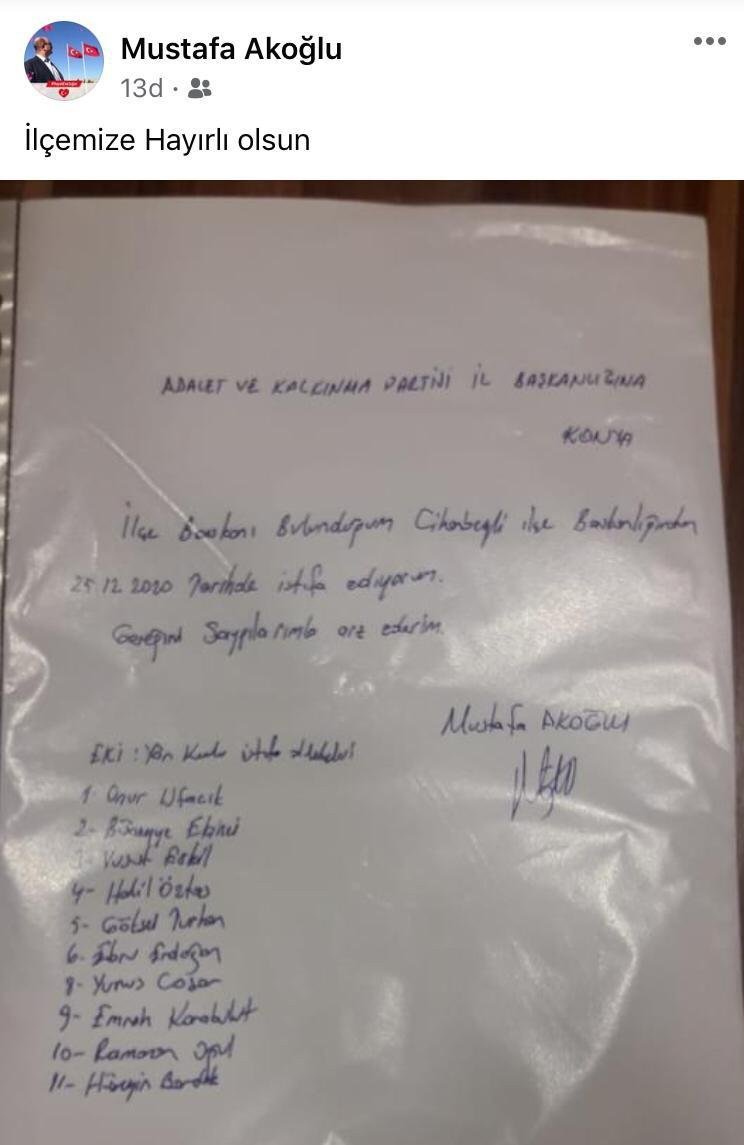 Mustafa Akoğlu
13d
İlçemize Hayırlı olsun
ADALET VE KALKINMA PARTİSİ İL BAŞKANLIĞINA
KONYA
İlçe Başkanı Bulunduğum Cihanbeyli ilçe Başkanlığından
25.12.2020 Tarihde istifa ediyorum.
Gereğini Saygılarımla arz ederim.
Mustafa AKOĞLU
EKİ : istifa
1- Onur Ufacık
2- Ekinci
3- Yusuf
4- Halil Öztaş
5- Göksel Turhan
6- Ebru Erdoğan
8- Yunus Coşar
9- Emrah Karabulut
10- Ramazan
11- Hüseyin